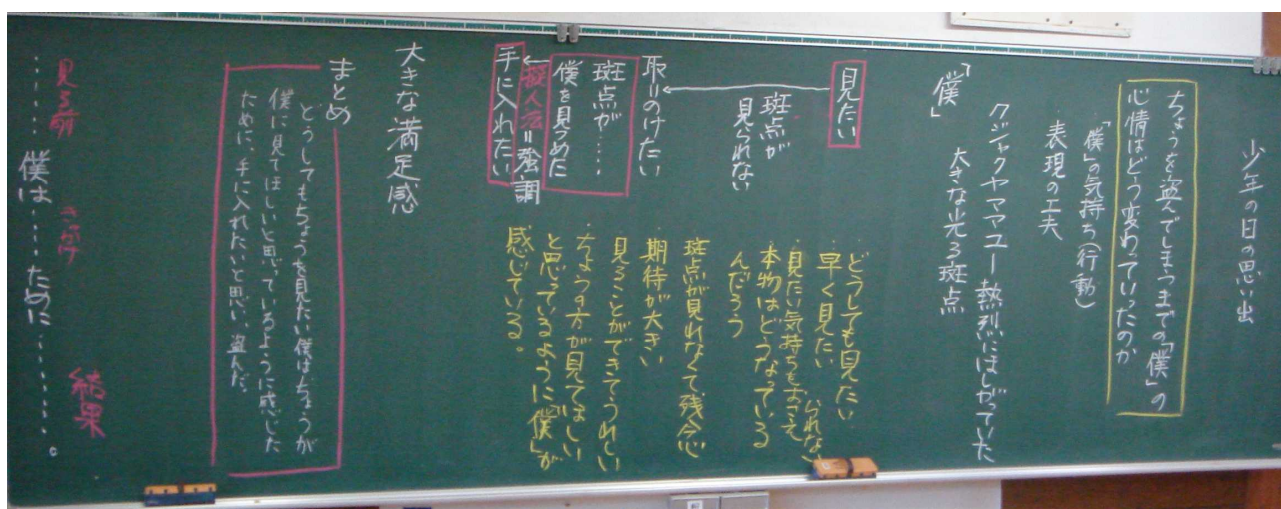 少年の日の思い出
ちょうを盗んでしまうまでの「僕」の
心情はどう変わっていったのか
「僕」の気持ち(行動)
表現の工夫
クジャクヤママユー熱烈にほしがっていた
大きな光る斑点
「僕」
見たい
斑点が
見られない
取りのけたい
斑点が‥‥
僕を見つめた
擬人法=強調
手に入れたい
・どうしても見たい
・早く見たい
・見たい気持ちをおさえ
られない
・本物はどうなっている
んだろう
斑点が見れなくて残念
・期待が大きい
見ることができてうれしい
・ちょうの方が見てほしい
と思っているように「僕」が
感じている。
大きな満足感
まとめ
どうしてもちょうを見たい僕はちょうが
僕に見てほしいと思っているように感じた
ために、手に入れたいと思い、盗んだ。
見る前
きっかけ
結果
‥‥‥僕は‥‥‥ために‥‥‥‥。